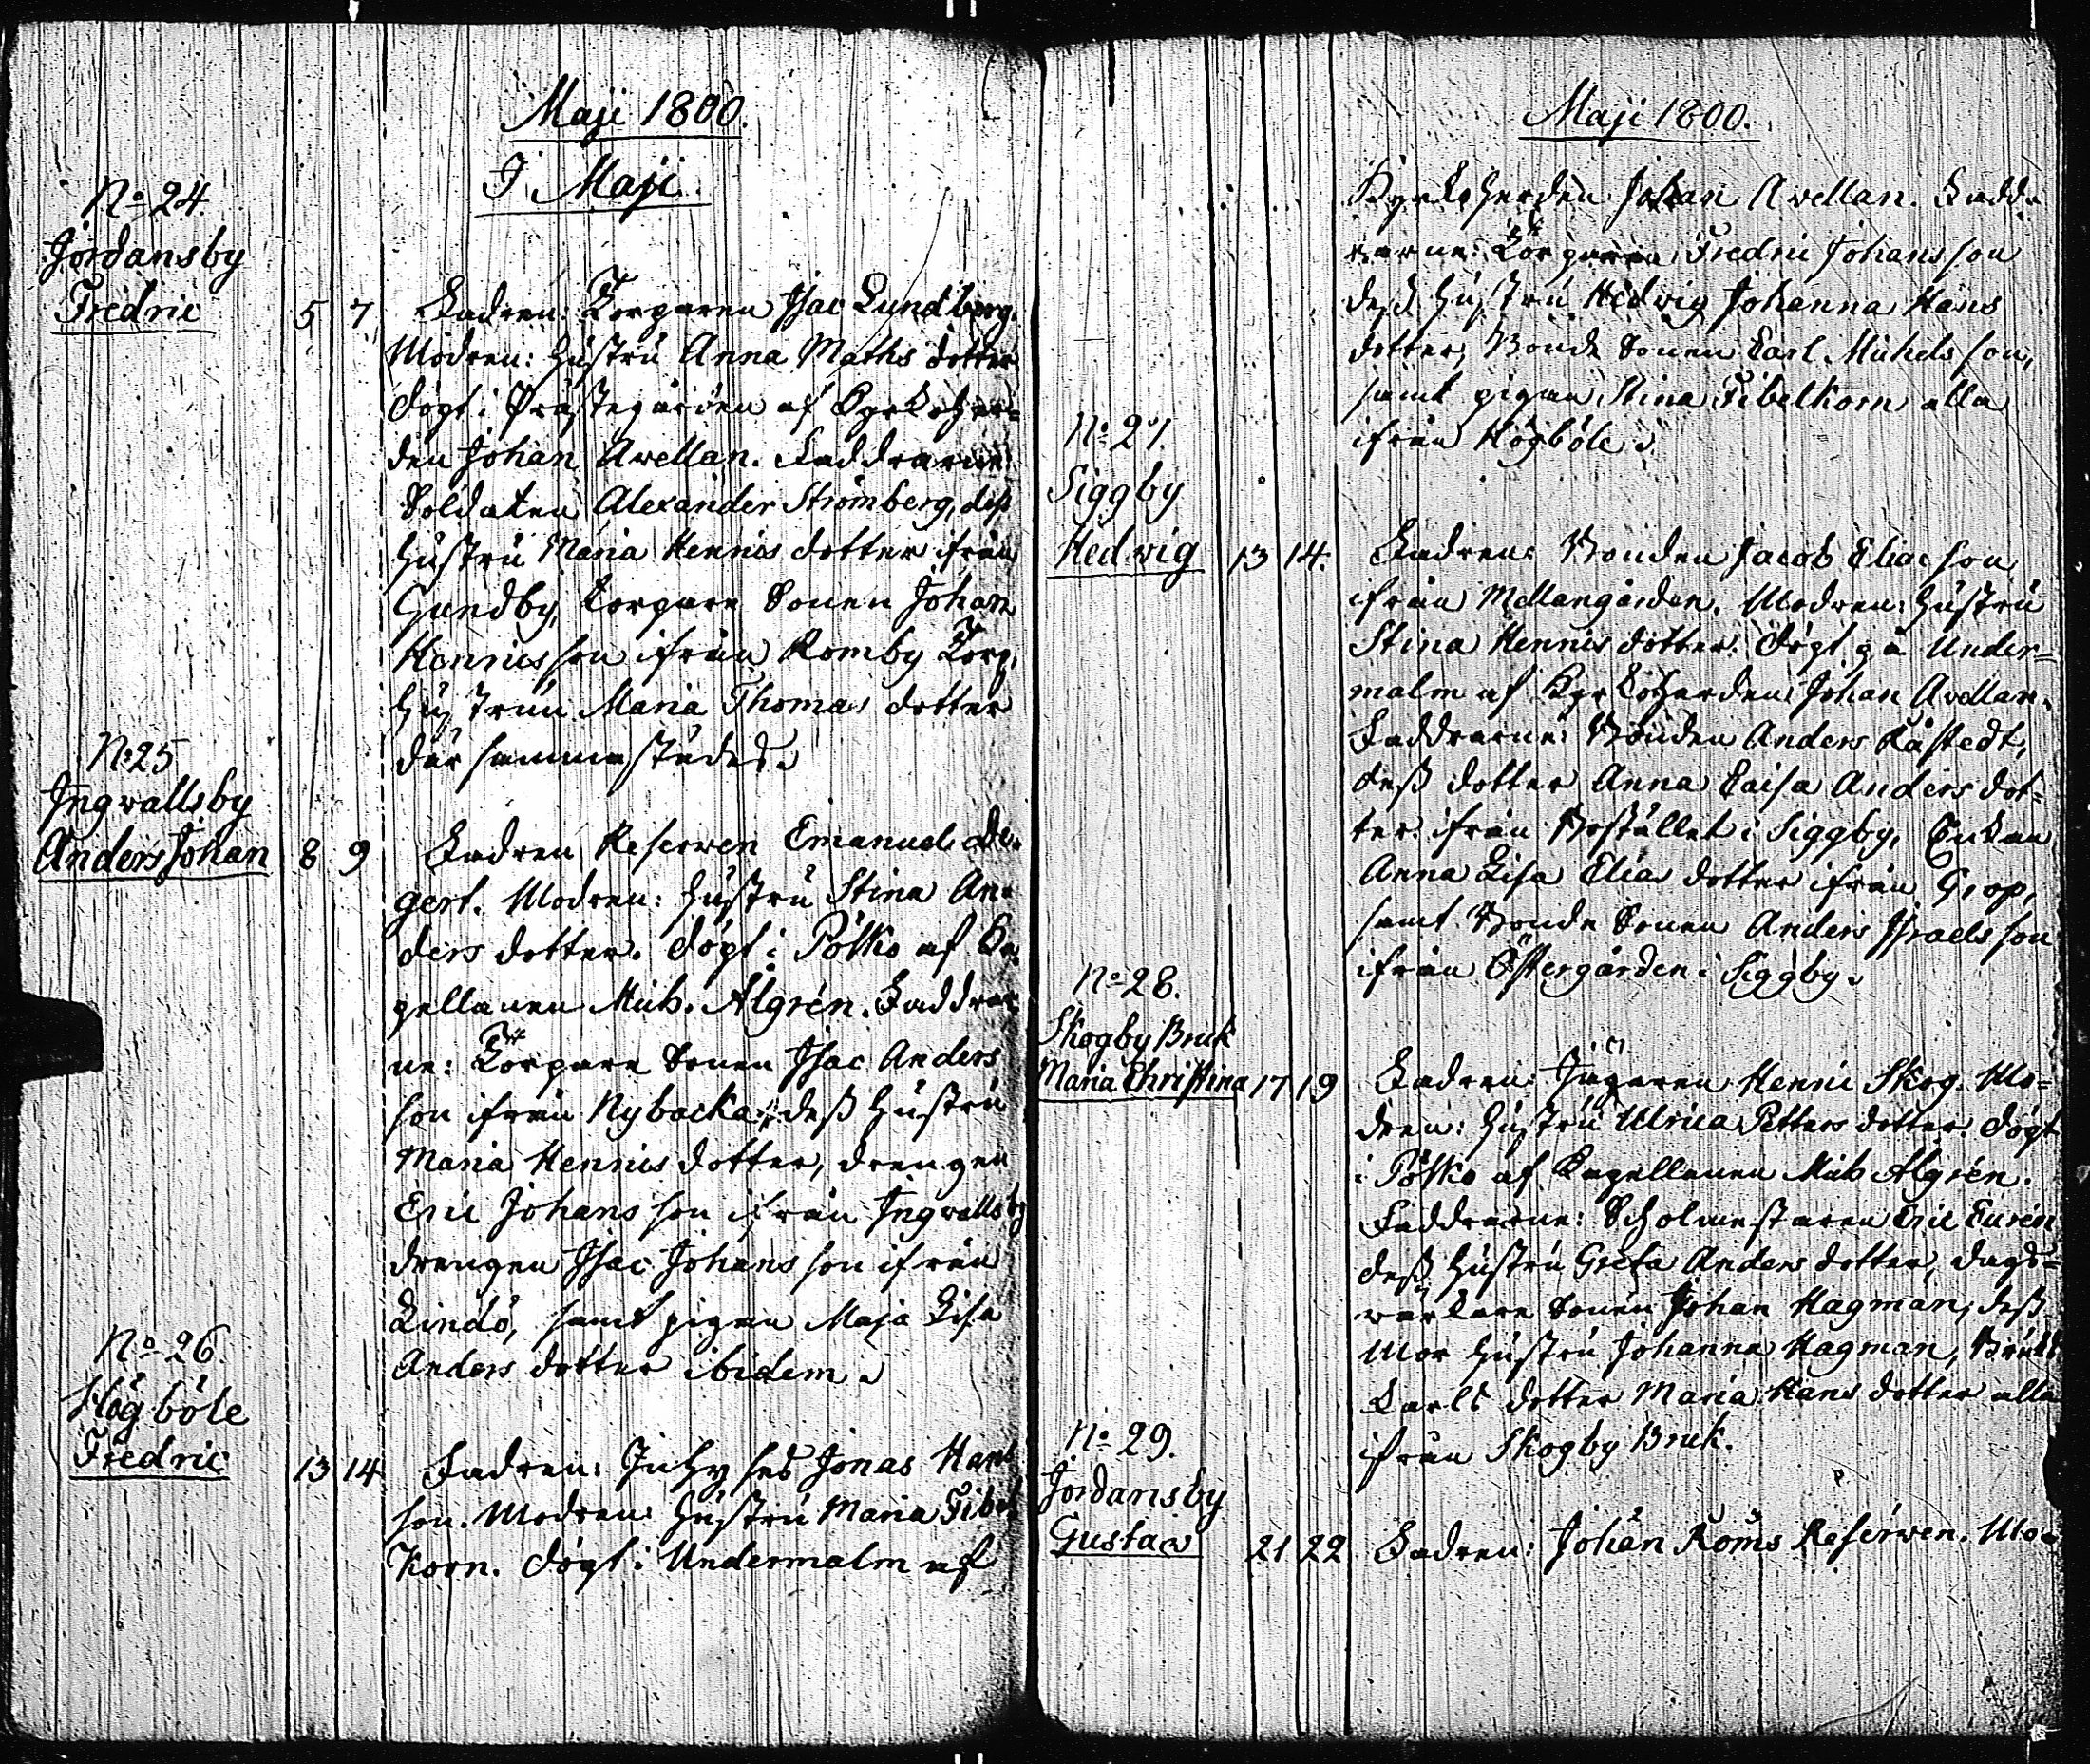 Maji 1800.
I Maji.
No 24.
Jordansby
Fredric 5 7
Fadren: Torparen Isac Lundberg.
Modren: hustru Anna Mathsdotter
döpt i Prästegården af Kyrkoher=
den Johan Avellan. Faddrarne:
Soldaten Alexander Strömberg, dess
hustru Maria Henricsdotter ifrån
Gundby, torpare Sonen Johan
Henricsson ifrån Romby Torp,
hustrun Maria Thomasdotter
där sammastädes.
No 25
Ingvallsby
Anders Johan 8 9
Fadren Reserven Emanuel
gert. Modren: hustru Stina An=
dersdotter. döpt i Pölkö af Ka=
pellanen Mich. Algrén. Faddrar=
ne: Torpare Sonen Isac Anders
son ifrån Nybacka, dess hustru
Maria Henricsdotter, drengen
Eric Johansson ifrån Ingvallsby
drengen Isac Johansson ifrån
Lindö, samt pigan Maja Lisa
Andersdotter ibidem.
No 26.
Högböle
Fredric 13 14
Fadren: Inhyses Jonas Hans
son. Modren: hustru Maria Fibel
Korn. döpt i Undermalm af
Maji 1800.
Kyrkoherden Johan Avellan. Fadd=
rarne: Torparen Fredric Johansson
dess hustru Hedvig Johanna Hans
dotter, Bonde Sonen Carl Michelsson,
samt pigan Stina Fibelkorn alla
ifrån Högböle.
No 27.
Siggby
Hedvig 13 14.
Fadren: Bonden Jacob Eliasson
ifrån Mellangården. Modren: hustru
Stina Henricsdotter. döpt på Under=
malm af Kyrkoherden Johan Avellan.
Faddrarne: Bonden Anders Råstedt,
dess dotter Anna Caisa Andersdot=
ter ifrån Bostället i Siggby, Enkan
Anna Lisa Eliædotter ifrån Grop,
samt Bonde Sonen Anders Israelsson
ifrån Östergården i Siggby.
No 28.
Skogby Bruk
Maria Christina 17 19
Fadren: Jägaren Henric Skog. Mo=
dren: hustru Ulrica Pettersdotter. döpt
i Pölkö af Kapellanen Mich Algrén.
Faddrarne: Scholmestaren Eric Eurén
dess hustru Greta Andersdotter, dags=
värkare Sonen Johan Hagman, dess
Mor hustru Johanna Hagman, Bruks
Karls dotter Maria Hansdotter alla
ifrån Skogby Bruk.
No 29.
Jordansby
Gustav 21 22
Fadren: Johan Röms Reserven. Mo=